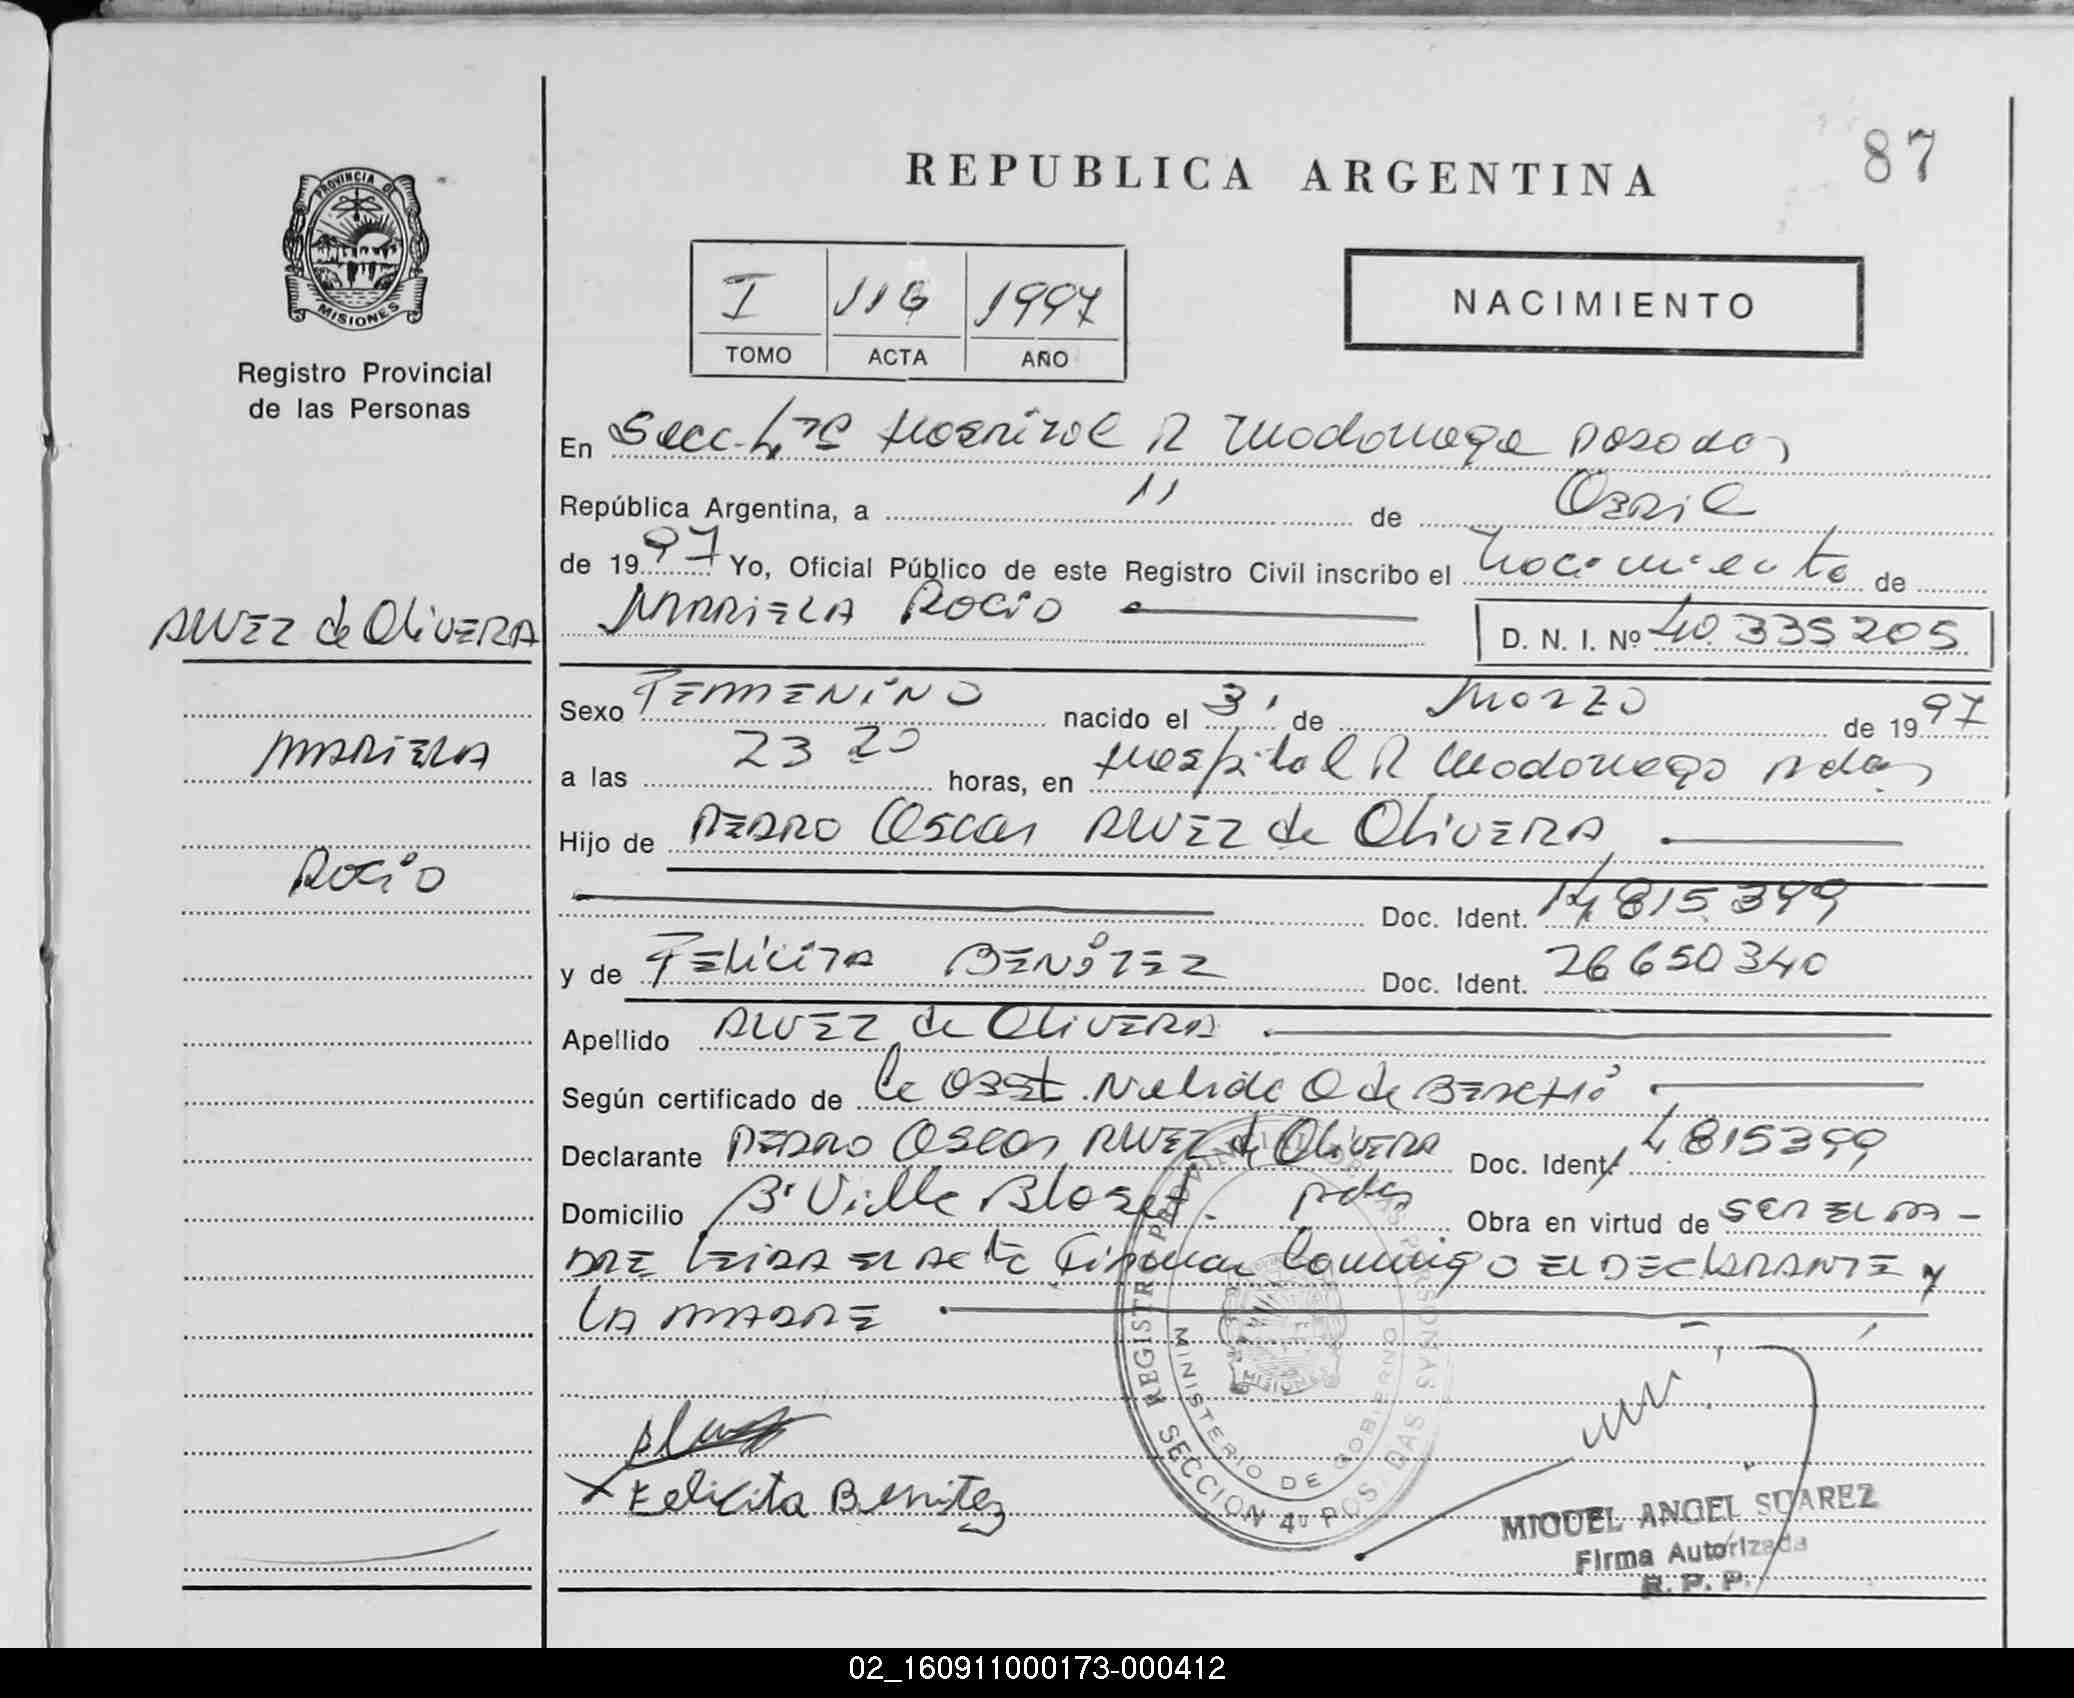 87
REPUBLICA ARGENTINA
PROVINCIA DE
MISIONES
Registro Provincial
de las Personas
I 116 1997
TOMO ACTA AÑO
NACIMIENTO
En Secc. 4ta Hospital R Madariaga Posadas
República Argentina, a 11 de Abril
de 1997 Yo, Oficial Público de este Registro Civil inscribo el Nacimiento de
ALVEZ de OLIVERA
MARIELA ROCIO D. N. I. Nº 40.335205
MARIELA
ROCIO
Sexo FEMENINO nacido el 31 de Marzo de 1997
a las 23 20 horas, en Hospital R Madariaga Pdas
Hijo de PEDRO OSCAR ALVEZ de OLIVERA
Doc. Ident. 14815399
y de FELICITA BENÍTEZ Doc. Ident. 26650340
Apellido ALVEZ de OLIVERA
Según certificado de la Obst. Nelida O de
Declarante PEDRO OSCAR ALVEZ de OLIVERA Doc. Ident. 14815399
Domicilio Bº Villa Blosset. Pdas Obra en virtud de SER EL PA-
DRE LEIDA EL ACTA Firman Conmigo EL DECLARANTE y
LA MADRE
REGISTRO PROVINCIAL DE LAS PERSONAS
MINISTERIO DE GOBIERNO
MISIONES
SECCION 4º POSADAS
x Felicita Benitez
MIGUEL ANGEL SUAREZ
Firma Autorizada
R. P. P.
02_160911000173-000412